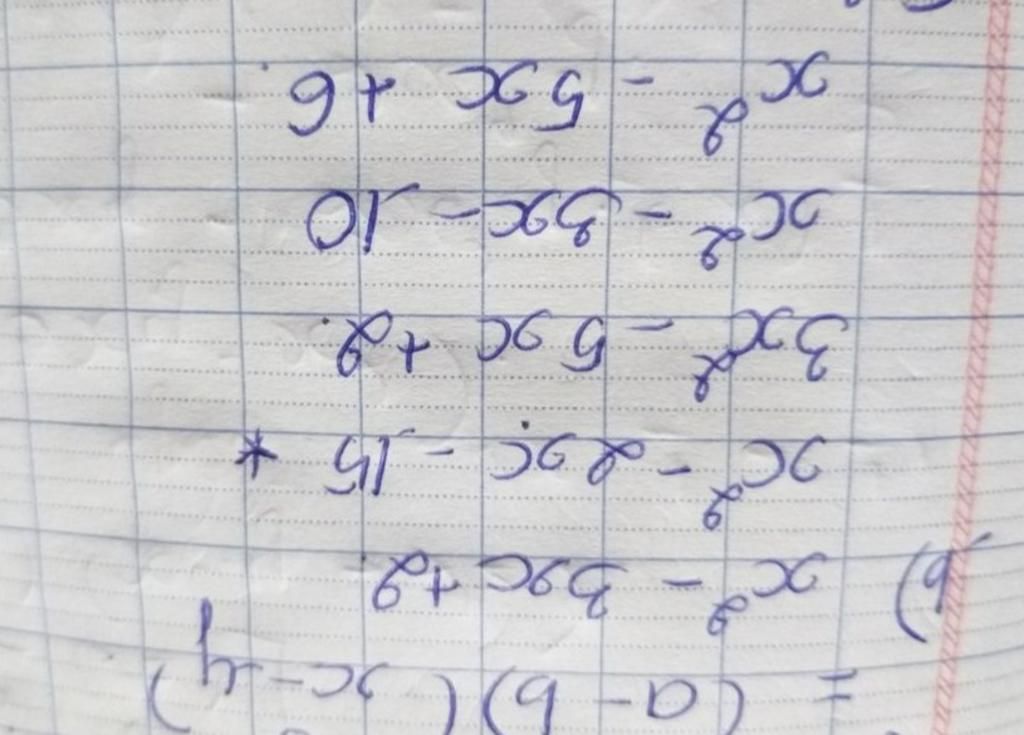 = (a - b) (x - y)
b) x² - 3x + 2
x² - 2x - 15 *
3x² - 5x + 2
x² - 3x - 10
x² - 5x + 6